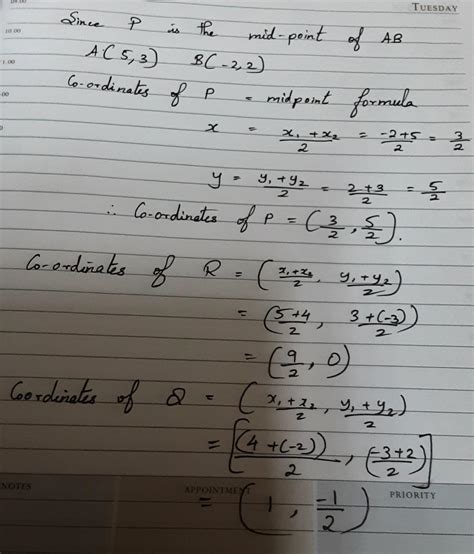 TUESDAY
Since P is the mid-point of AB
10.00
A(5,3) B(-2,2)
Co-ordinates of P = midpoint formula
x = x₁+x₂/2 = -2+5/2 = 3/2
y = y₁+y₂/2 = 2+3/2 = 5/2
∴ Co-ordinates of P = (3/2, 5/2).
Co-ordinates of R = (x₁+x₂/2, y₁+y₂/2)
= (5+4/2, 3+(-3)/2)
= (9/2, 0)
Coordinates of Q = (x₁+x₂/2, y₁+y₂/2)
= [(4+(-2))/2, (-3+2/2)]
NOTES APPOINTMENT PRIORITY
= (1, -1/2)